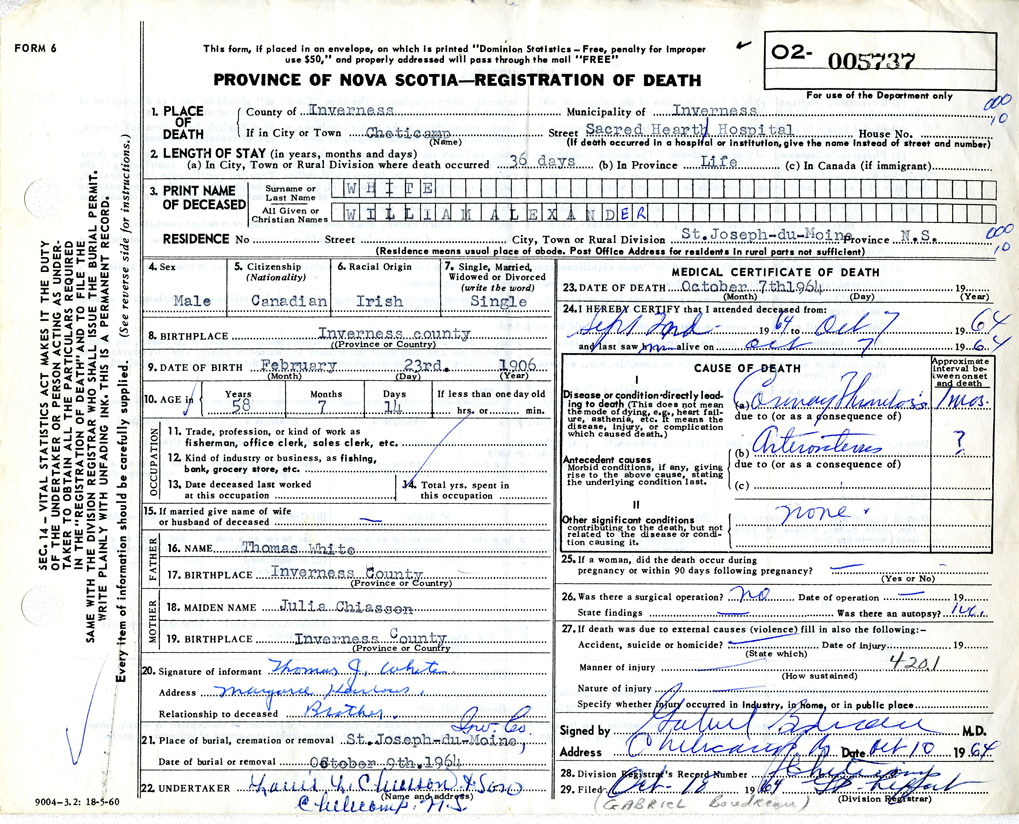 FORM 6
This form, if placed in an envelope, on which is printed "Dominion Statistics – Free, penalty for improper
use $50," and properly addressed will pass through the mail "FREE"
PROVINCE OF NOVA SCOTIA—REGISTRATION OF DEATH
O2- 005737
For use of the Department only
000
,10
1. PLACE OF DEATH
County of Inverness Municipality of Inverness
If in City or Town Cheticamp Street Sacred Hearth Hospital House No.
(Name) (If death occurred in a hospital or institution, give the name instead of street and number)
2. LENGTH OF STAY (in years, months and days)
(a) In City, Town or Rural Division where death occurred 36 days (b) In Province Life (c) In Canada (if immigrant)
3. PRINT NAME OF DECEASED
Surname or Last Name WHITE
All Given or Christian Names WILLIAM ALEXANDER
RESIDENCE No Street City, Town or Rural Division St.Joseph-du-Moine Province N.S.
000
,10
(Residence means usual place of abode. Post Office Address for residents in rural parts not sufficient)
4. Sex
Male
5. Citizenship
(Nationality)
Canadian
6. Racial Origin
Irish
7. Single, Married,
Widowed or Divorced
(write the word)
Single
8. BIRTHPLACE Inverness county
(Province or Country)
9. DATE OF BIRTH February 23rd. 1906
(Month) (Day) (Year)
10. AGE in Years Months Days If less than one day old
58 7 14 hrs. or min.
OCCUPATION
11. Trade, profession, or kind of work as
fisherman, office clerk, sales clerk, etc.
12. Kind of industry or business, as fishing,
bank, grocery store, etc.
13. Date deceased last worked
at this occupation
14. Total yrs. spent in
this occupation
15. If married give name of wife
or husband of deceased —
FATHER
16. NAME Thomas White
17. BIRTHPLACE Inverness County
(Province or Country)
MOTHER
18. MAIDEN NAME Julia Chiasson
19. BIRTHPLACE Inverness County
(Province or Country)
20. Signature of informant Thomas J. White
Address Margaree Harbour.
Relationship to deceased Brother.
Inv. Co.
21. Place of burial, cremation or removal St.Joseph-du-Moine,
Date of burial or removal October 9th.1964
22. UNDERTAKER Chiasson & Son
(Name and address)
Cheticamp. N.S.
9004-3.2: 18-5-60
MEDICAL CERTIFICATE OF DEATH
23. DATE OF DEATH October 7th1964 19
(Month) (Day) (Year)
24. I HEREBY CERTIFY that I attended deceased from:
Sept 2nd 1964 to Oct 7 1964
and last saw him alive on Oct 7 1964
CAUSE OF DEATH
Approximate
interval between onset
and death
I
Disease or condition directly leading to death (This does not mean
the mode of dying, e.g., heart failure, asthenia, etc. It means the
disease, injury, or complication
which caused death.)
(a) Coronary Thrombosis 1 mos.
due to (or as a consequence of)
Antecedent causes
Morbid conditions, if any, giving
rise to the above cause, stating
the underlying condition last.
(b) ?
due to (or as a consequence of)
(c)
II
Other significant conditions
contributing to the death, but not
related to the disease or condition causing it.
none.
25. If a woman, did the death occur during
pregnancy or within 90 days following pregnancy? —
(Yes or No)
26. Was there a surgical operation? No Date of operation — 19
State findings — Was there an autopsy?
27. If death was due to external causes (violence) fill in also the following:–
Accident, suicide or homicide? — Date of injury 19
(State which)
4201
Manner of injury —
(How sustained)
Nature of injury —
Specify whether injury occurred in industry, in home, or in public place
Signed by Gabriel Boudreau M.D.
Address Cheticamp Date Oct 10 1964
28. Division Registrar's Record Number Cheticamp
29. Filed Oct. 18 1964
(Division Registrar)
(GABRIEL Boudreau)
SEC. 14 – VITAL STATISTICS ACT MAKES IT THE DUTY
OF THE UNDERTAKER OR PERSON ACTING AS UNDERTAKER TO OBTAIN ALL THE PARTICULARS REQUIRED
IN THE "REGISTRATION OF DEATH" AND TO FILE THE
SAME WITH THE DIVISION REGISTRAR WHO SHALL ISSUE THE BURIAL PERMIT.
WRITE PLAINLY WITH UNFADING INK. THIS IS A PERMANENT RECORD.
Every item of information should be carefully supplied. (See reverse side for instructions.)